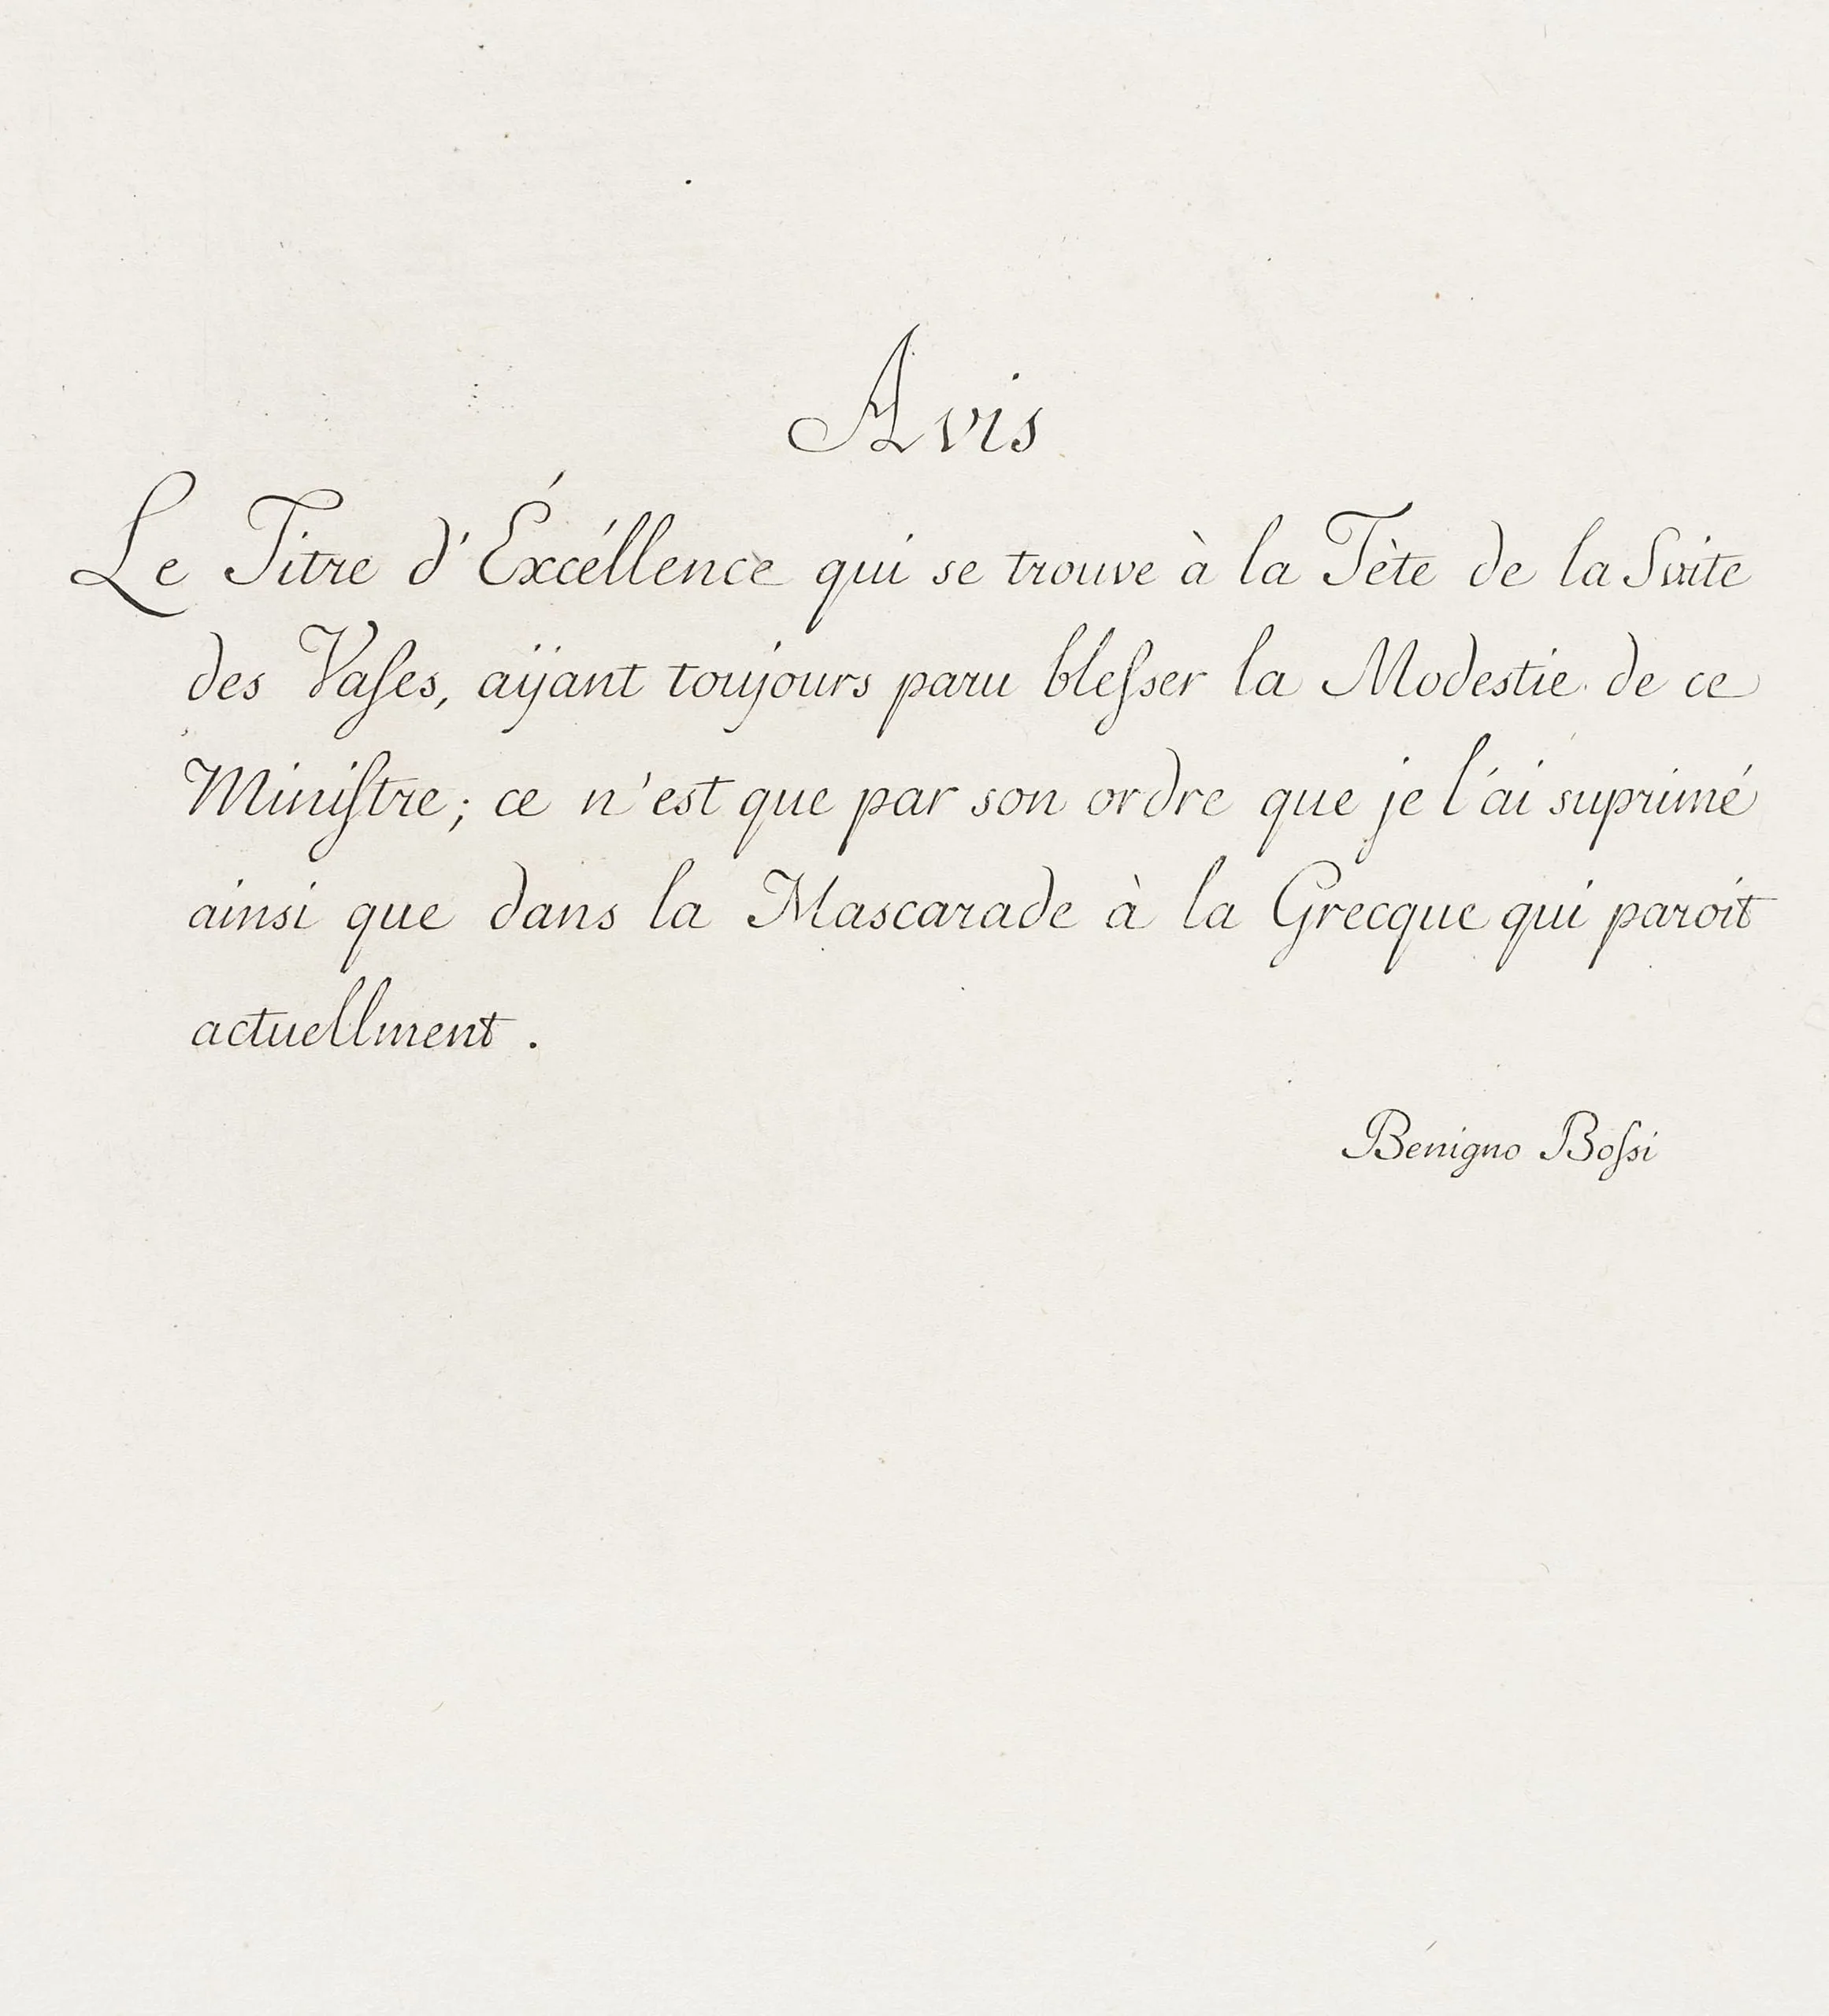 Avis
Le Titre d'Éxcéllence qui se trouve à la Tète de la Suite
des Vaſes, aÿant toujours paru bleſser la Modestie de ce
Miniſtre; ce n'est que par son ordre que je l'ai suprimé
ainsi que dans la Mascarade à la Grecque qui paroit
actuellment.
Benigno Boſsi